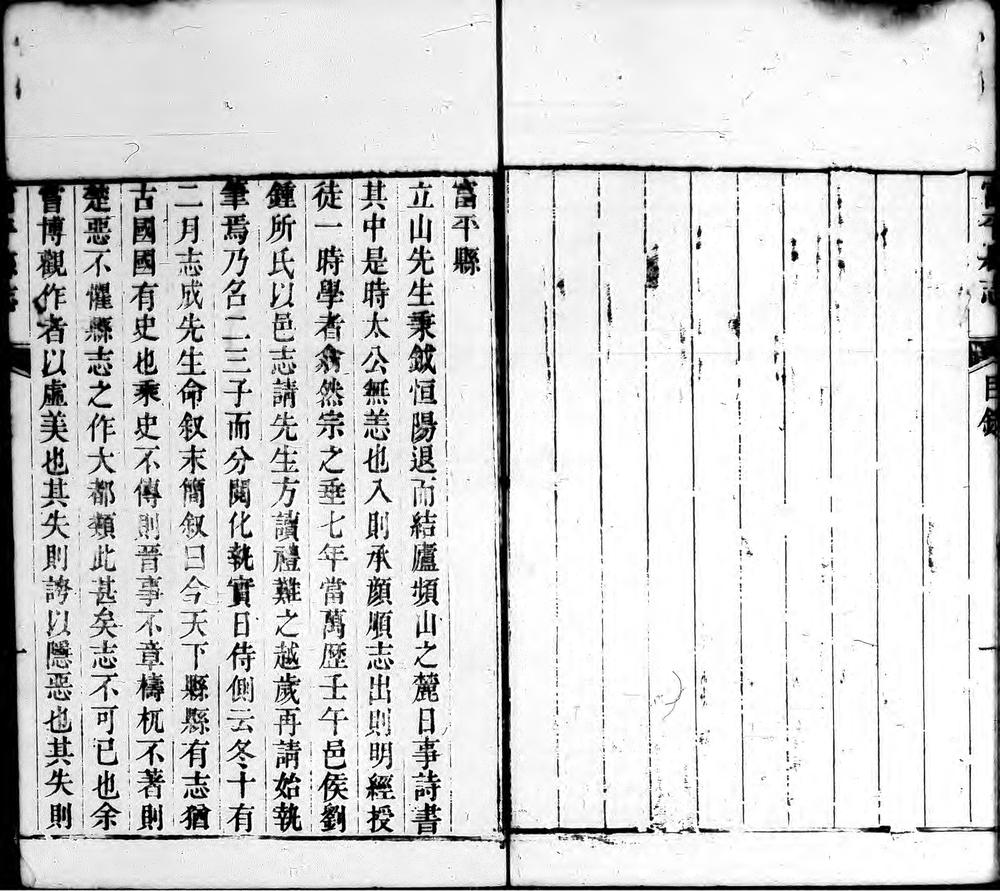 富平縣志
目錄
一
富平縣
立山先生秉鉞恒陽退而結廬頻山之麓日事詩書
其中是時太公無恙也入則承顏順志出則明經授
徒一時學者翕然宗之垂七年當萬歷壬午邑侯劉
鍾所氏以邑志請先生方讀禮難之越歲再請始執
筆焉乃名二三子而分閱化執實日侍側云冬十有
二月志成先生命叙末簡叙曰今天下縣縣有志猶
古國國有史也乘史不傳則晉事不章檮杌不著則
楚惡不懼縣志之作大都類此甚矣志不可已也余
嘗博觀作者以虛美也其失則謗以隱惡也其失則